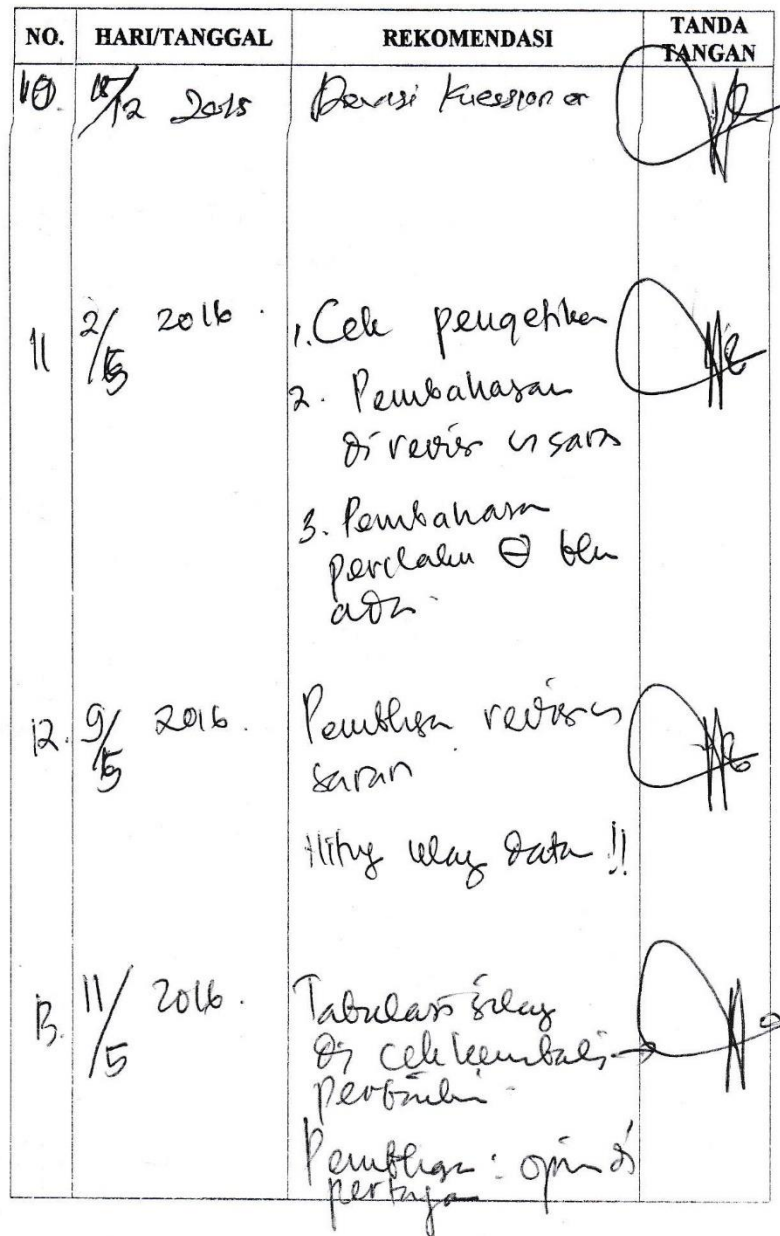 NO. HARI/TANGGAL REKOMENDASI TANDA TANGAN
10. /12 2015 Kuesioner
11 2/5 2016. 1. Cek pengetikan
2. Pembahasan
di revisi saran
3. Pembahasan
perilaku ⊖ blm
ada.
12. 9/5 2016. revisi
saran
Hitung ulang data !!
13. 11/5 2016. Tabulasi silang
di cek kembali →
perbaiki
Pembhsn : opini di
pertajam